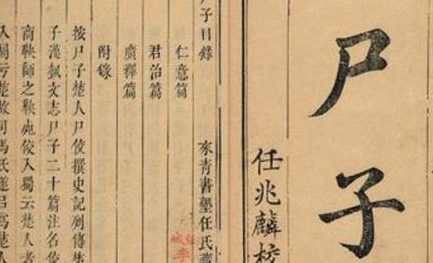 尸子
任兆麟校
尸子目錄 來青書塾任氏
仁意篇
君治篇
廣釋篇
附錄
按尸子楚人尸佼撰史記列傳
子漢藝文志尸子二十篇注名佼
商鞅師之鞅死佼入蜀云楚人者
楚故司馬氏遂